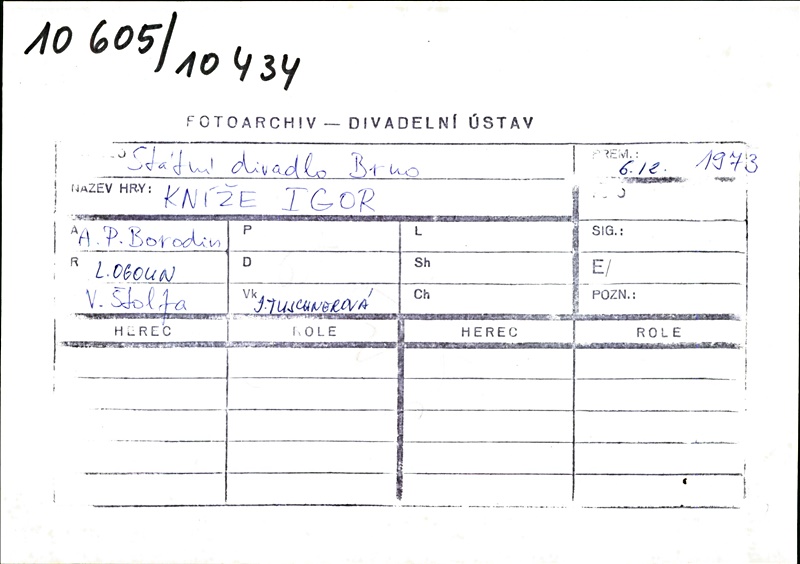 10 605/10 434
FOTOARCHIV — DIVADELNÍ ÚSTAV
Státní divadlo Brno PREM.: 6.12. 1973
NÁZEV HRY: KNÍŽE IGOR
A A. P. Borodin P L SIG.:
R L. OGOUN D Sh E/
V. Štolfa Vk J. TUSCHNEROVÁ Ch POZN.:
HEREC ROLE HEREC ROLE